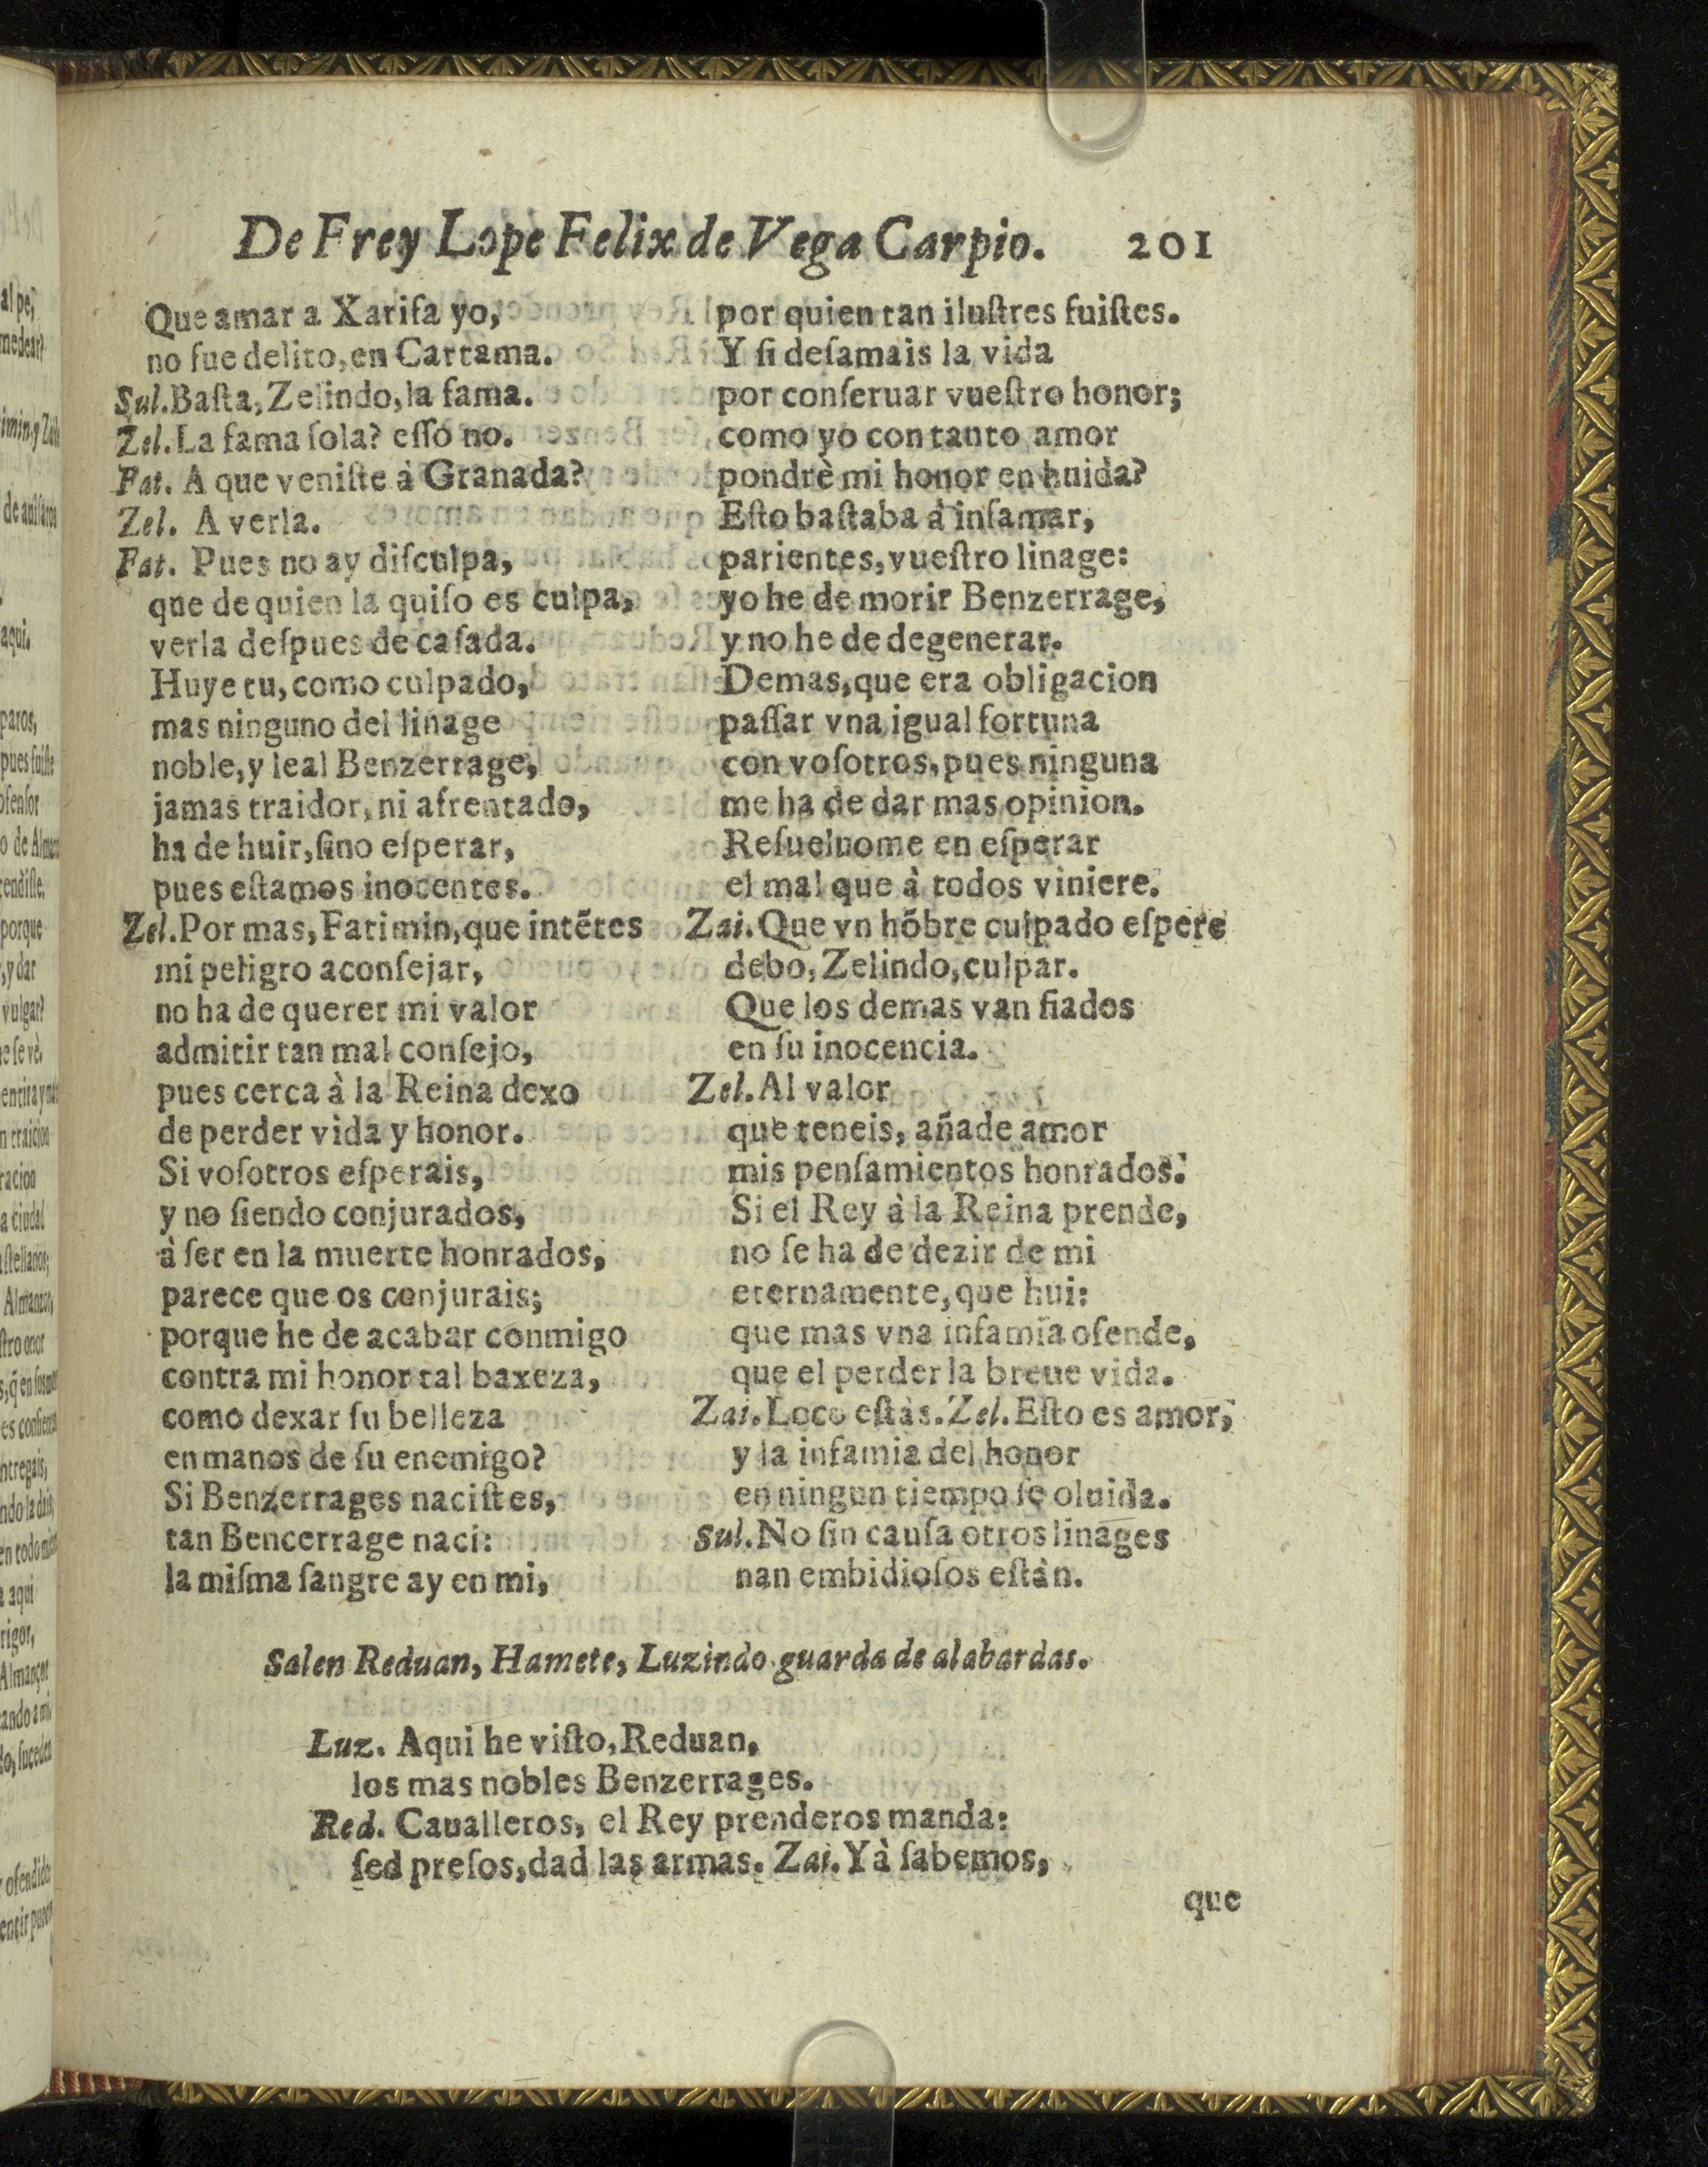 De Frey Lope Felix de Vega Carpio. 201
Que amar a Xarifa yo,
no fue delito, en Cartama.
Sul. Basta, Zelindo, la fama.
Zel. La fama ſola? eſſo no.
Fat. A que veniſte à Granada?
Zel. A verla.
Fat. Pues no ay diſculpa,
que de quien la quiſo es culpa,
verla deſpues de caſada.
Huye tu, como culpado,
mas ninguno del linage
noble, y leal Benzerrage,
jamas traidor, ni afrentado,
ha de huir, ſino eſperar,
pues eſtamos inocentes.
Zel. Por mas, Fatimin, que intẽtes
mi peligro aconſejar,
no ha de querer mi valor
admitir tan mal conſejo,
pues cerca à la Reina dexo
de perder vida y honor.
Si voſotros eſperais,
y no ſiendo conjurados,
à ſer en la muerte honrados,
parece que os conjurais;
porque he de acabar conmigo
contra mi honor tal baxeza,
como dexar ſu belleza
en manos de ſu enemigo?
Si Benzerrages naciſtes,
tan Bencerrage naci:
la miſma ſangre ay en mi,
por quien tan iluſtres fuiſtes.
Y ſi deſamais la vida
por conſeruar vueſtro honor;
como yo con tanto amor
pondrè mi honor en huida?
Eſto baſtaba à infamar,
parientes, vueſtro linage:
yo he de morir Benzerrage,
y no he de degenerar.
Demas, que era obligacion
paſſar vna igual fortuna
con voſotros, pues ninguna
me ha de dar mas opinion.
Reſueluome en eſperar
el mal que à todos viniere.
Zai. Que vn hõbre culpado eſpere
debo, Zelindo, culpar.
Que los demas van fiados
en ſu inocencia.
Zel. Al valor
que teneis, añade amor
mis penſamientos honrados.
Si el Rey à la Reina prende,
no ſe ha de dezir de mi
eternamente, que hui:
que mas vna infamia ofende,
que el perder la breue vida.
Zai. Loco eſtàs. Zel. Eſto es amor,
y la infamia del honor
en ningun tiempo ſe oluida.
Sul. No ſin cauſa otros linages
nan embidioſos eſtàn.
Salen Reduan, Hamete, Luzindo guarda de alabardas.
Luz. Aqui he viſto, Reduan,
los mas nobles Benzerrages.
Red. Caualleros, el Rey prenderos manda:
ſed preſos, dad las armas. Zai. Yà ſabemos,
que